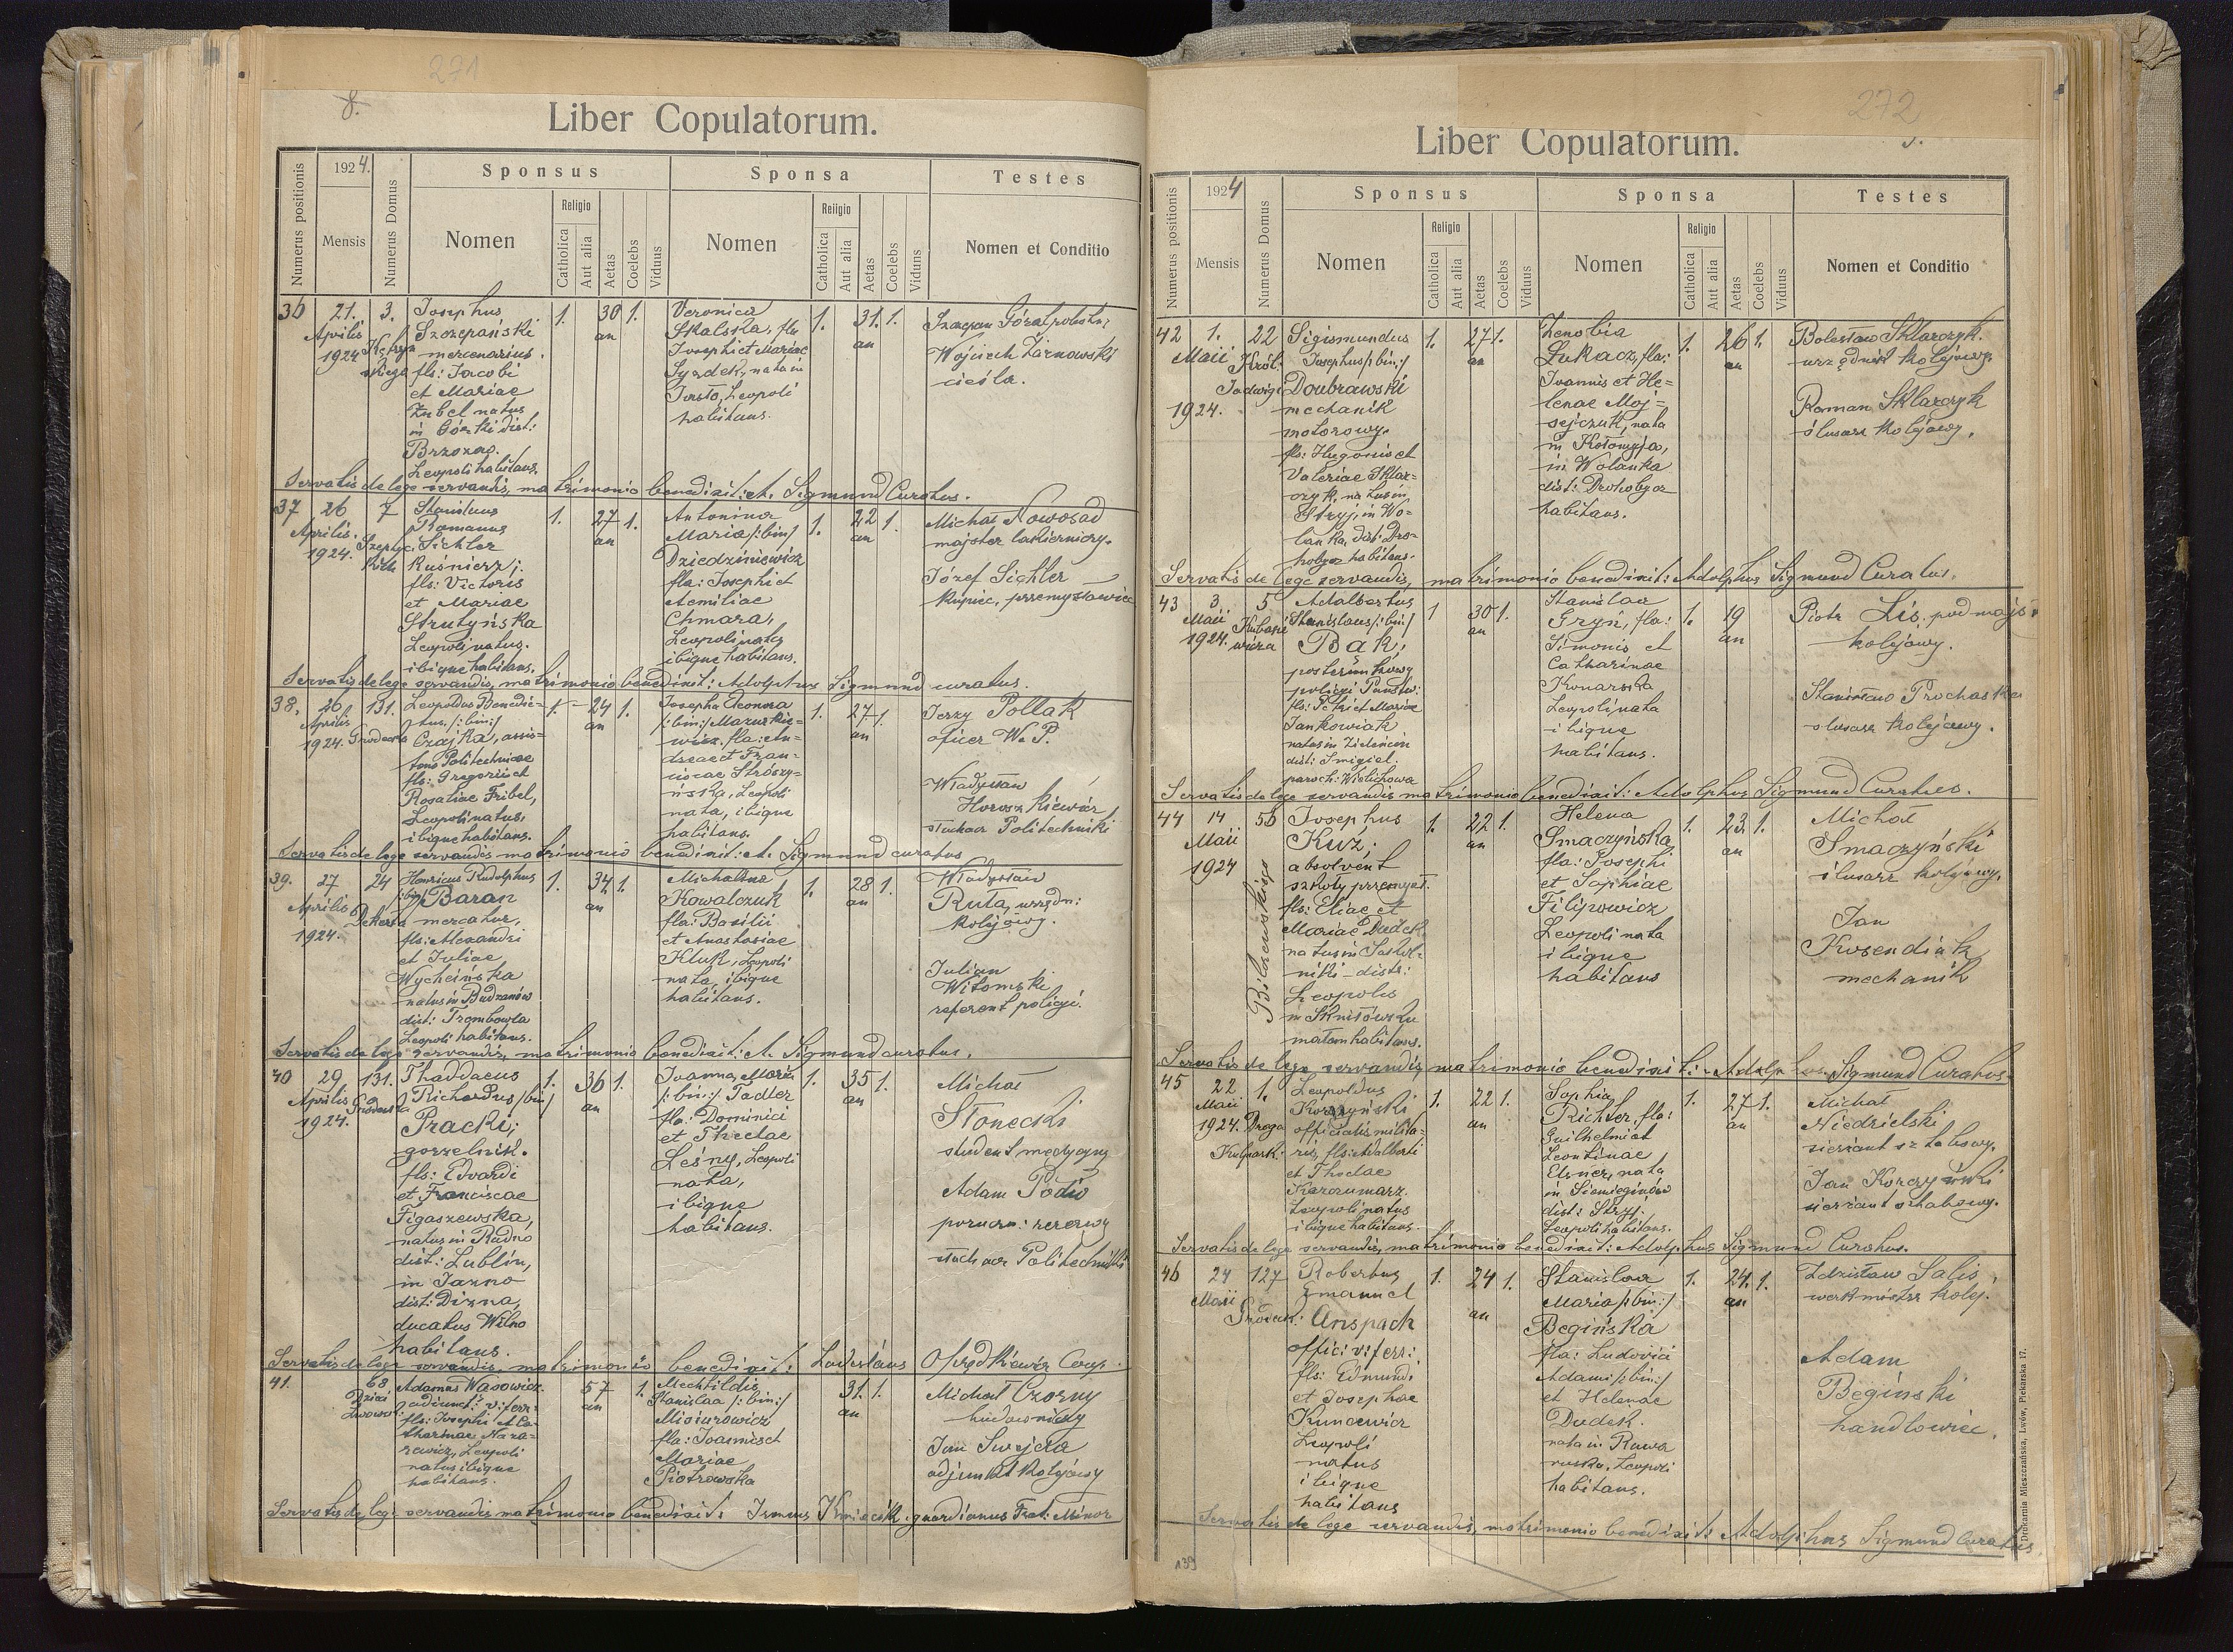 271
8.
Liber Copulatorum.
Numerus positionis
1924.
Mensis
Numerus Domus
Sponsus
Nomen
Religio
Catholica
Aut alia
Aetas
Coelebs
Viduus
Sponsa
Nomen
Religio
Catholica
Aut alia
Aetas
Coelebs
Viduus
Testes
Nomen et Conditio
36
21.
Aprilis
1924
3.
Josephus
Szczepański
mercenarius.
fls: Jacobi
et Mariae
Zubel natus
in Górki dist:
Brzozow.
Leopoli habitans.
1.
30
an
1.
Veronica
Skalska, fla
Josephi et Mariae
nata in
Leopoli
habitans.
1.
31.
an
1.
Szczepan Góral
Wojciech Żarnowski
cieśla.
Servatis de lege servandis, matrimonio benedixit: A. Sigmund Curatus.
37
26
Aprilis.
1924.
7
Szeptyc
kich
Stanislaus
Romanus
Sichler
Kuśnierz;
fls: Victoris
et Mariae
Strutyńska
Leopoli natus.
ibique habitans.
1.
27
an
1.
Antonina
Maria /:bin:/
Dziedziniewicz
fla: Josephi et
Aemiliae
Chmara,
Leopoli nata
ibique habitans.
1.
22
an
1.
Michał Nowosad
majster lakierniczy.
Józef Sichler
kupiec, przemysłowiec
Servatis de lege servandis, matrimonio benedixit: Adolphus Sigmund curatus.
38.
26
Aprilis
1924.
131.
Grodecka
Leopoldus Benedic=
tus, /:bin:/
Czajka, assis=
tens Politechnicae
fls: Gregorii et
Rosaliae Fribel,
Leopoli natus,
ibique habitans.
1.
24
an
1.
Josepha Eleonora
/:bin:/ Mazurkie=
wicz. fla: An=
dreae et Fran=
ciscae Strószy=
ńska, Leopoli
nata, ibique
habitans.
1.
27
an
1.
Jerzy Pollak
oficer W. P.
Władysław
Horoszkiewicz
słuchacz Politechniki
Servatis de lege servandis matrimonio benedixit: A. Sigmund curatus
39.
27
Aprilis
1924.
24
Dekerta
Henricus Rudolphus
/:bin:/ Baran
mercator,
fls: Alexandri
et Juliae
Wycheińska
natus in Budzanów
dist: Trembowla
Leopoli habitans.
1.
34
an
1.
Michalina
Kowalczuk
fla: Basilii
et Anastasiae
Kluk, Leopoli
nata, ibique
habitans.
1.
28
an
1.
Władysław
Ruta, urzędn:
kolejowy.
Julian
Witomski
referent policyi.
Servatis de lege servandis, matrimonio benedixit: A. Sigmund curatus.
40
29
Aprilis
1924.
131.
Grodecka
Thaddaeus
Richardus /:bin:/
Pracki;
gorzelnik.
fls: Edvardi
et Franciscae
Figaszewska,
natus in Radno
dist: Lublin,
in Jazno
dist: Dizna,
ducatus Wilno
habitans.
1.
36
an
1.
Joanna Maria
/:bin:/ Tadler
fla: Dominici
et Theclae
Leśny, Leopoli
nata,
ibique
habitans.
1.
35
an
1.
Michał
Słonecki
student medycyny
Adam
poruczn: rezerwy
słuchacz Politechniki
Servatis de lege servandis, matrimonio benedixit: Ladislaus Coop.
41.
68
Dzieci
Lwowskich
Adamus Wasowicz
adiunct: v: ferr:
fls: Josephi et Ca=
tharinae Naza=
rewicz, Leopoli
natus ibique
habitans.
57
an
1.
Mechtildis
Stanislaa /:bin:/
Misiurowicz
fla: Joannis et
Mariae
Piotrowska
31.
an
1.
Michał Czorny
budowniczy
Jan Swejda
adjunkt kolejowy
Servatis de lege servandis matrimonio benedixit: guardianus Frat: Minor
272
9.
Liber Copulatorum.
Numerus positionis
1924
Mensis
Numerus Domus
Sponsus
Nomen
Religio
Catholica
Aut alia
Aetas
Coelebs
Viduus
Sponsa
Nomen
Religio
Catholica
Aut alia
Aetas
Coelebs
Viduus
Testes
Nomen et Conditio
42
1.
Maii
1924.
22
Król.
Jadwigi
Sigismundus
Josephus /:bin:/
Doubrawski
mechanik
motorowy.
fls: Hugonis et
Valeriae Sklar=
czyk, natus in
Stryj, in Wo=
lanka, dist: Dro=
hobycz habitans.
1.
27
an
1.
Zenobia
Łukacz, fla:
Joannis et He=
lenae Moj=
sejczuk, nata
in Kołomyja,
in Wolanka
dist: Drohobycz
habitans.
1.
26
an
1.
Bolesław Sklarczyk.
urzędnik kolejowy.
Roman Sklarczyk
ślusarz kolejowy.
Servatis de lege servandis, matrimonio benedixit: Adolphus Sigmund Curatus.
43
3
Maii
1924.
5
Kubasie
wicza
Adalbertus
Stanislaus /:bin:/
Bąk,
posterunkowy
policyi Państw:
fls: Petri et Mariae
Jankowiak
natus in Zielęcin
dist: Smigiel.
paroch: Wielichowa
1
30
an
1.
Stanislaa
Gryń, fla:
Simonis et
Catharinae
Konarska
Leopoli nata
ibique
habitans.
1.
19
an
Piotr Lis, podmajst.
kolejowy.
Stanisław Prochaska
ślusarz kolejowy.
Servatis de lege servandis matrimonio benedixit: Adolphus Sigmund Curatus.
44
14
Maii
1924
56
Bilczewskiego
Josephus
Kuź;
absolvent
szkoły przemysł.
fls: Eliae et
Mariae Dudek
natus in
distr:
Leopolis
in Skniłówku
małem habitans.
1.
22
an
1.
Helena
Smaczyńska
fla: Josephi
et Sophiae
Filipowicz
Leopoli nata
ibique
habitans
1.
23
an
1.
Michał
Smaczyński
ślusarz kolejowy.
Jan
Kosendiak
mechanik
Servatis de lege servandis, matrimonio benedixit: Adolphus Sigmund Curatus.
45
22
Maii
1924.
1.
Droga
Kulpark:
Leopoldus
Korczyński
officialis milita=
ris, fls: Adalberti
et Theclae
Karczmarz.
Leopoli natus
ibique habitans.
1.
22
an
1.
Sophia
Richter, fla:
Guilhelmi et
Leontinae
Elsner, nata
in Siemiginów
dist: Stryj.
Leopoli habitans.
1.
27
an
1.
Michał
Niedzielski
sierżant sztabowy.
Jan Korczyński
sierżant sztabowy.
Servatis de lege servandis, matrimonio benedixit: Adolphus Sigmund Curatus.
46
24
Maii
127
Gródeck:
Robertus
Emanuel
Anspach
offici: v: ferr:
fls: Edmundi
et Josephae
Kuncewicz
Leopoli
natus
ibique
habitans
1.
24
an
1.
Stanislaa
Maria /:bin:/
Begińska
fla: Ludovici
Adami /:bin:/
et Helenae
Dudek.
nata in Rawa
ruska, Leopoli
habitans.
1.
24.
an
1.
Zdzisław Salis,
werkmistrz kolej.
Adam
Begiński
handlowiec.
Servatis de lege servandis, matrimonio benedixit: Adolphus Sigmund Curatus
139
Drukarnia Mieszczańska, Lwów, Piekarska 17.